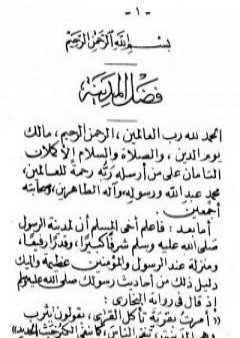 - ١ -
بسم الله الرحمن الرحيم
فضل المدينة
الحمد لله رب العالمين، الرحمن الرحيم، مالك
يوم الدين، والصلاة والسلام الأكملان
التامان على من أرسله ربه رحمة للعالمين،
محمد عبد الله ورسوله وآله الطاهرين وصحابته
أجمعين.
أما بعد: فاعلم أخي المسلم أن لمدينة الرسول
صلى الله عليه وسلم شرفا كبيرا، وقدرا رفيعا،
ومنزلة عند الرسول والمؤمنين عظيمة وإليك
دليل ذلك من أحاديث رسولك صلى الله عليه وسلم
إذ قال في رواية البخاري:
«أمرت بقرية تأكل القرى، يقولون يثرب
وهي المدينة، تنفي الناس، كما ينفي الكير خبث الحديد»